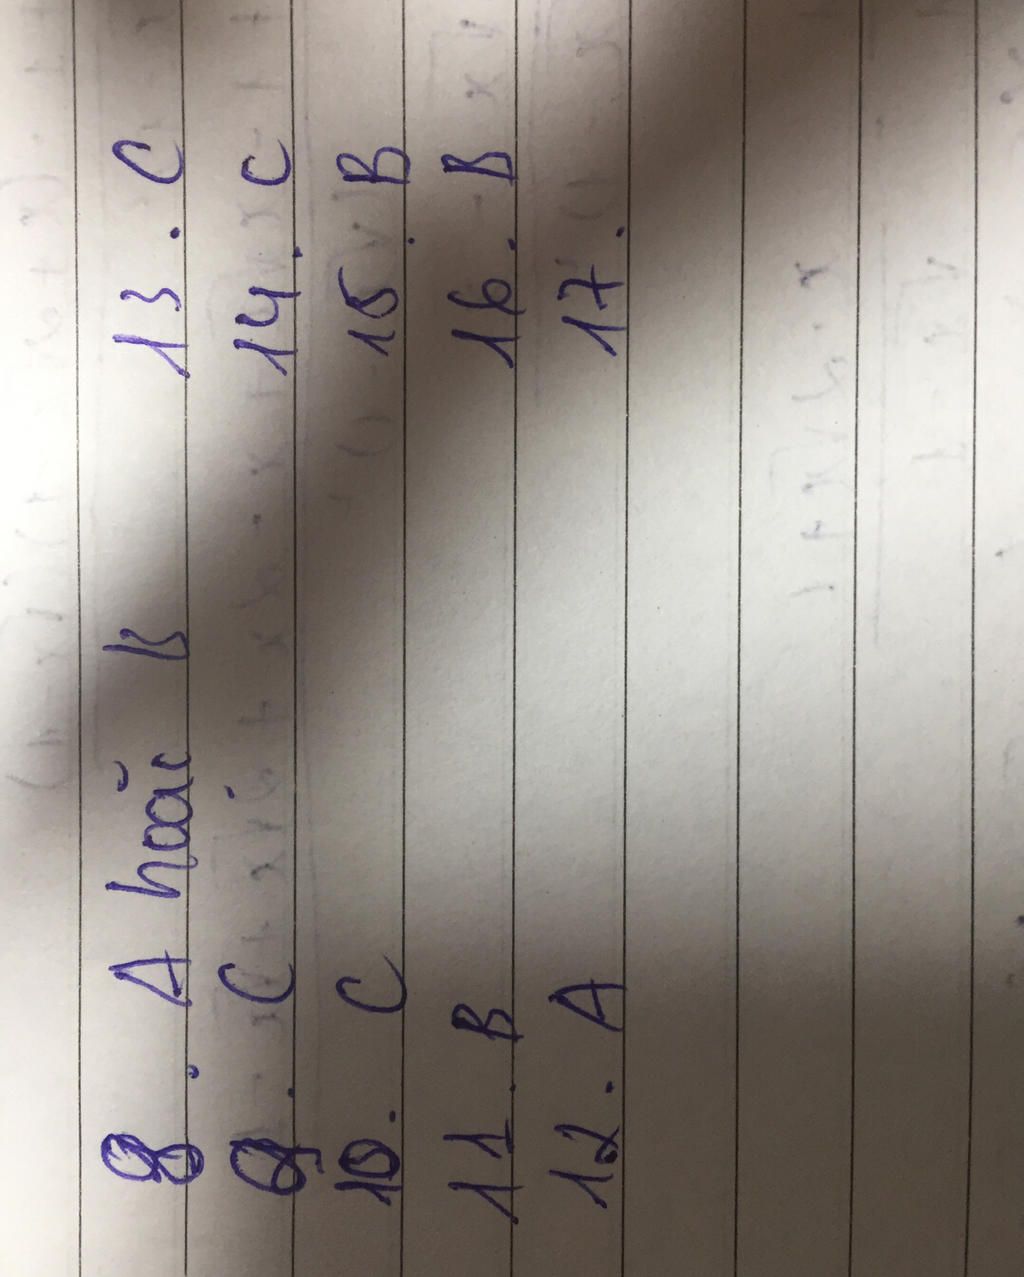 8. A hoặc B
9. C
10. C
11. B
12. A
13. C
14. C
15. B
16. B
17.